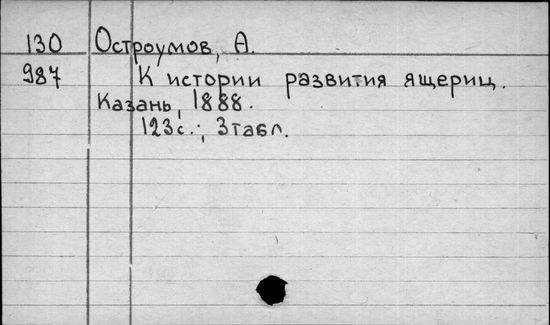 130 Остроумов, А.
987 К истории развития ящериц.
Казань, 1888.
123с.; 3табл.